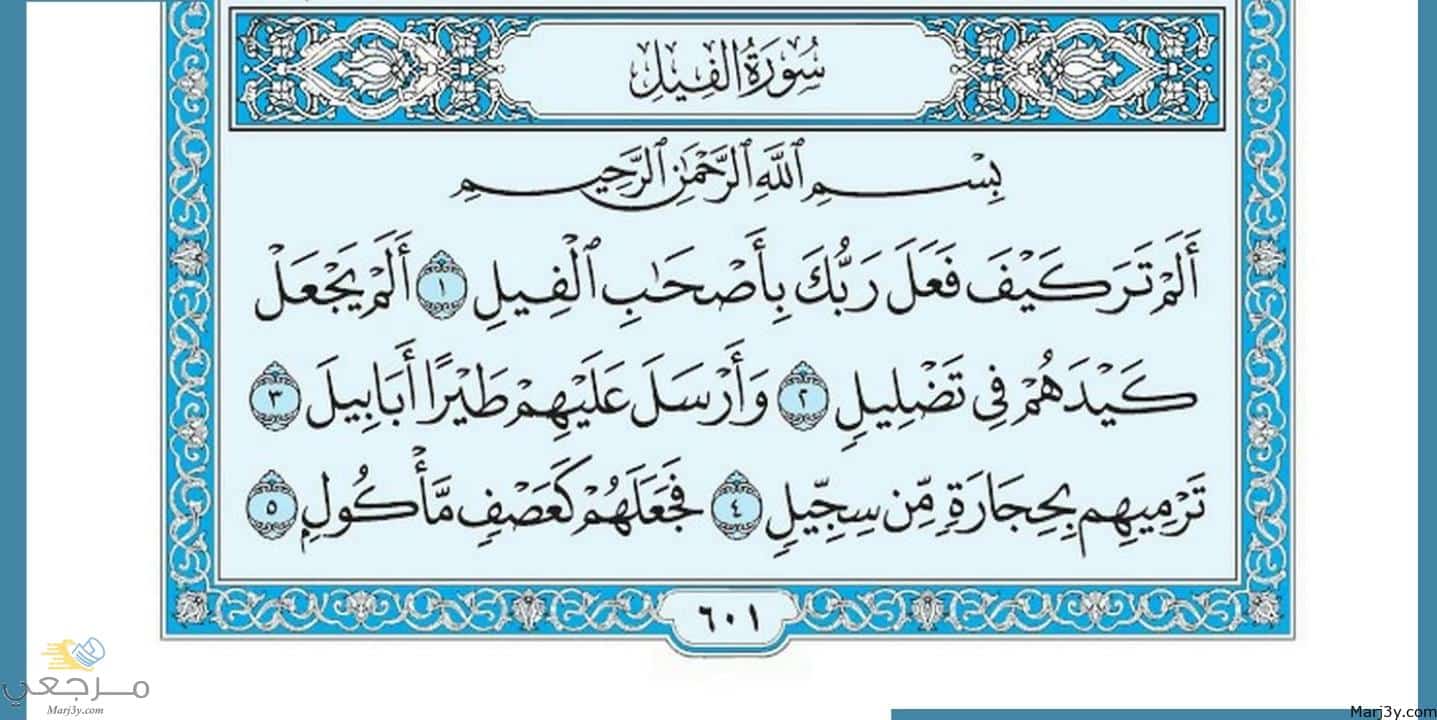 سُورَةُ الفِيلِ
بِسْمِ ٱللَّهِ ٱلرَّحْمَٰنِ ٱلرَّحِيمِ
أَلَمْ تَرَ كَيْفَ فَعَلَ رَبُّكَ بِأَصْحَٰبِ ٱلْفِيلِ ١ أَلَمْ يَجْعَلْ
كَيْدَهُمْ فِي تَضْلِيلٍ ٢ وَأَرْسَلَ عَلَيْهِمْ طَيْرًا أَبَابِيلَ ٣
تَرْمِيهِم بِحِجَارَةٍ مِّن سِجِّيلٍ ٤ فَجَعَلَهُمْ كَعَصْفٍ مَّأْكُولٍ ٥
٦٠١
مرجعي
Marj3y.com
Marj3y.com